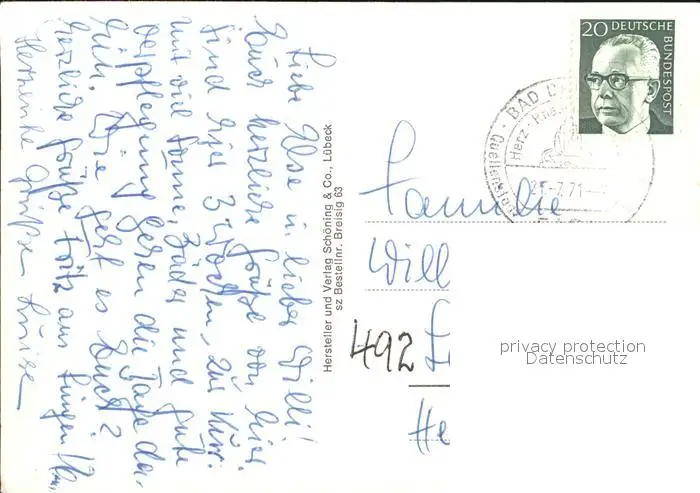 Liebe Else u. lieber Willi!
Euch herzliche Grüße von hier.
Sind hier 3 Wochen zur Kur.
mit viel Sonne, Bäder und gute
Verpflegung gehen die Tage da-
hin. Wie geht es Euch?
Herzliche Grüße Fritz aus Lingen
Herzliche Grüße Luise
Hersteller und Verlag Schöning & Co., Lübeck
sz Bestellnr. Breisig 63
20 DEUTSCHE
BUNDESPOST
BAD
Herz
7.71
Familie
Will
492
He
privacy protection
Datenschutz